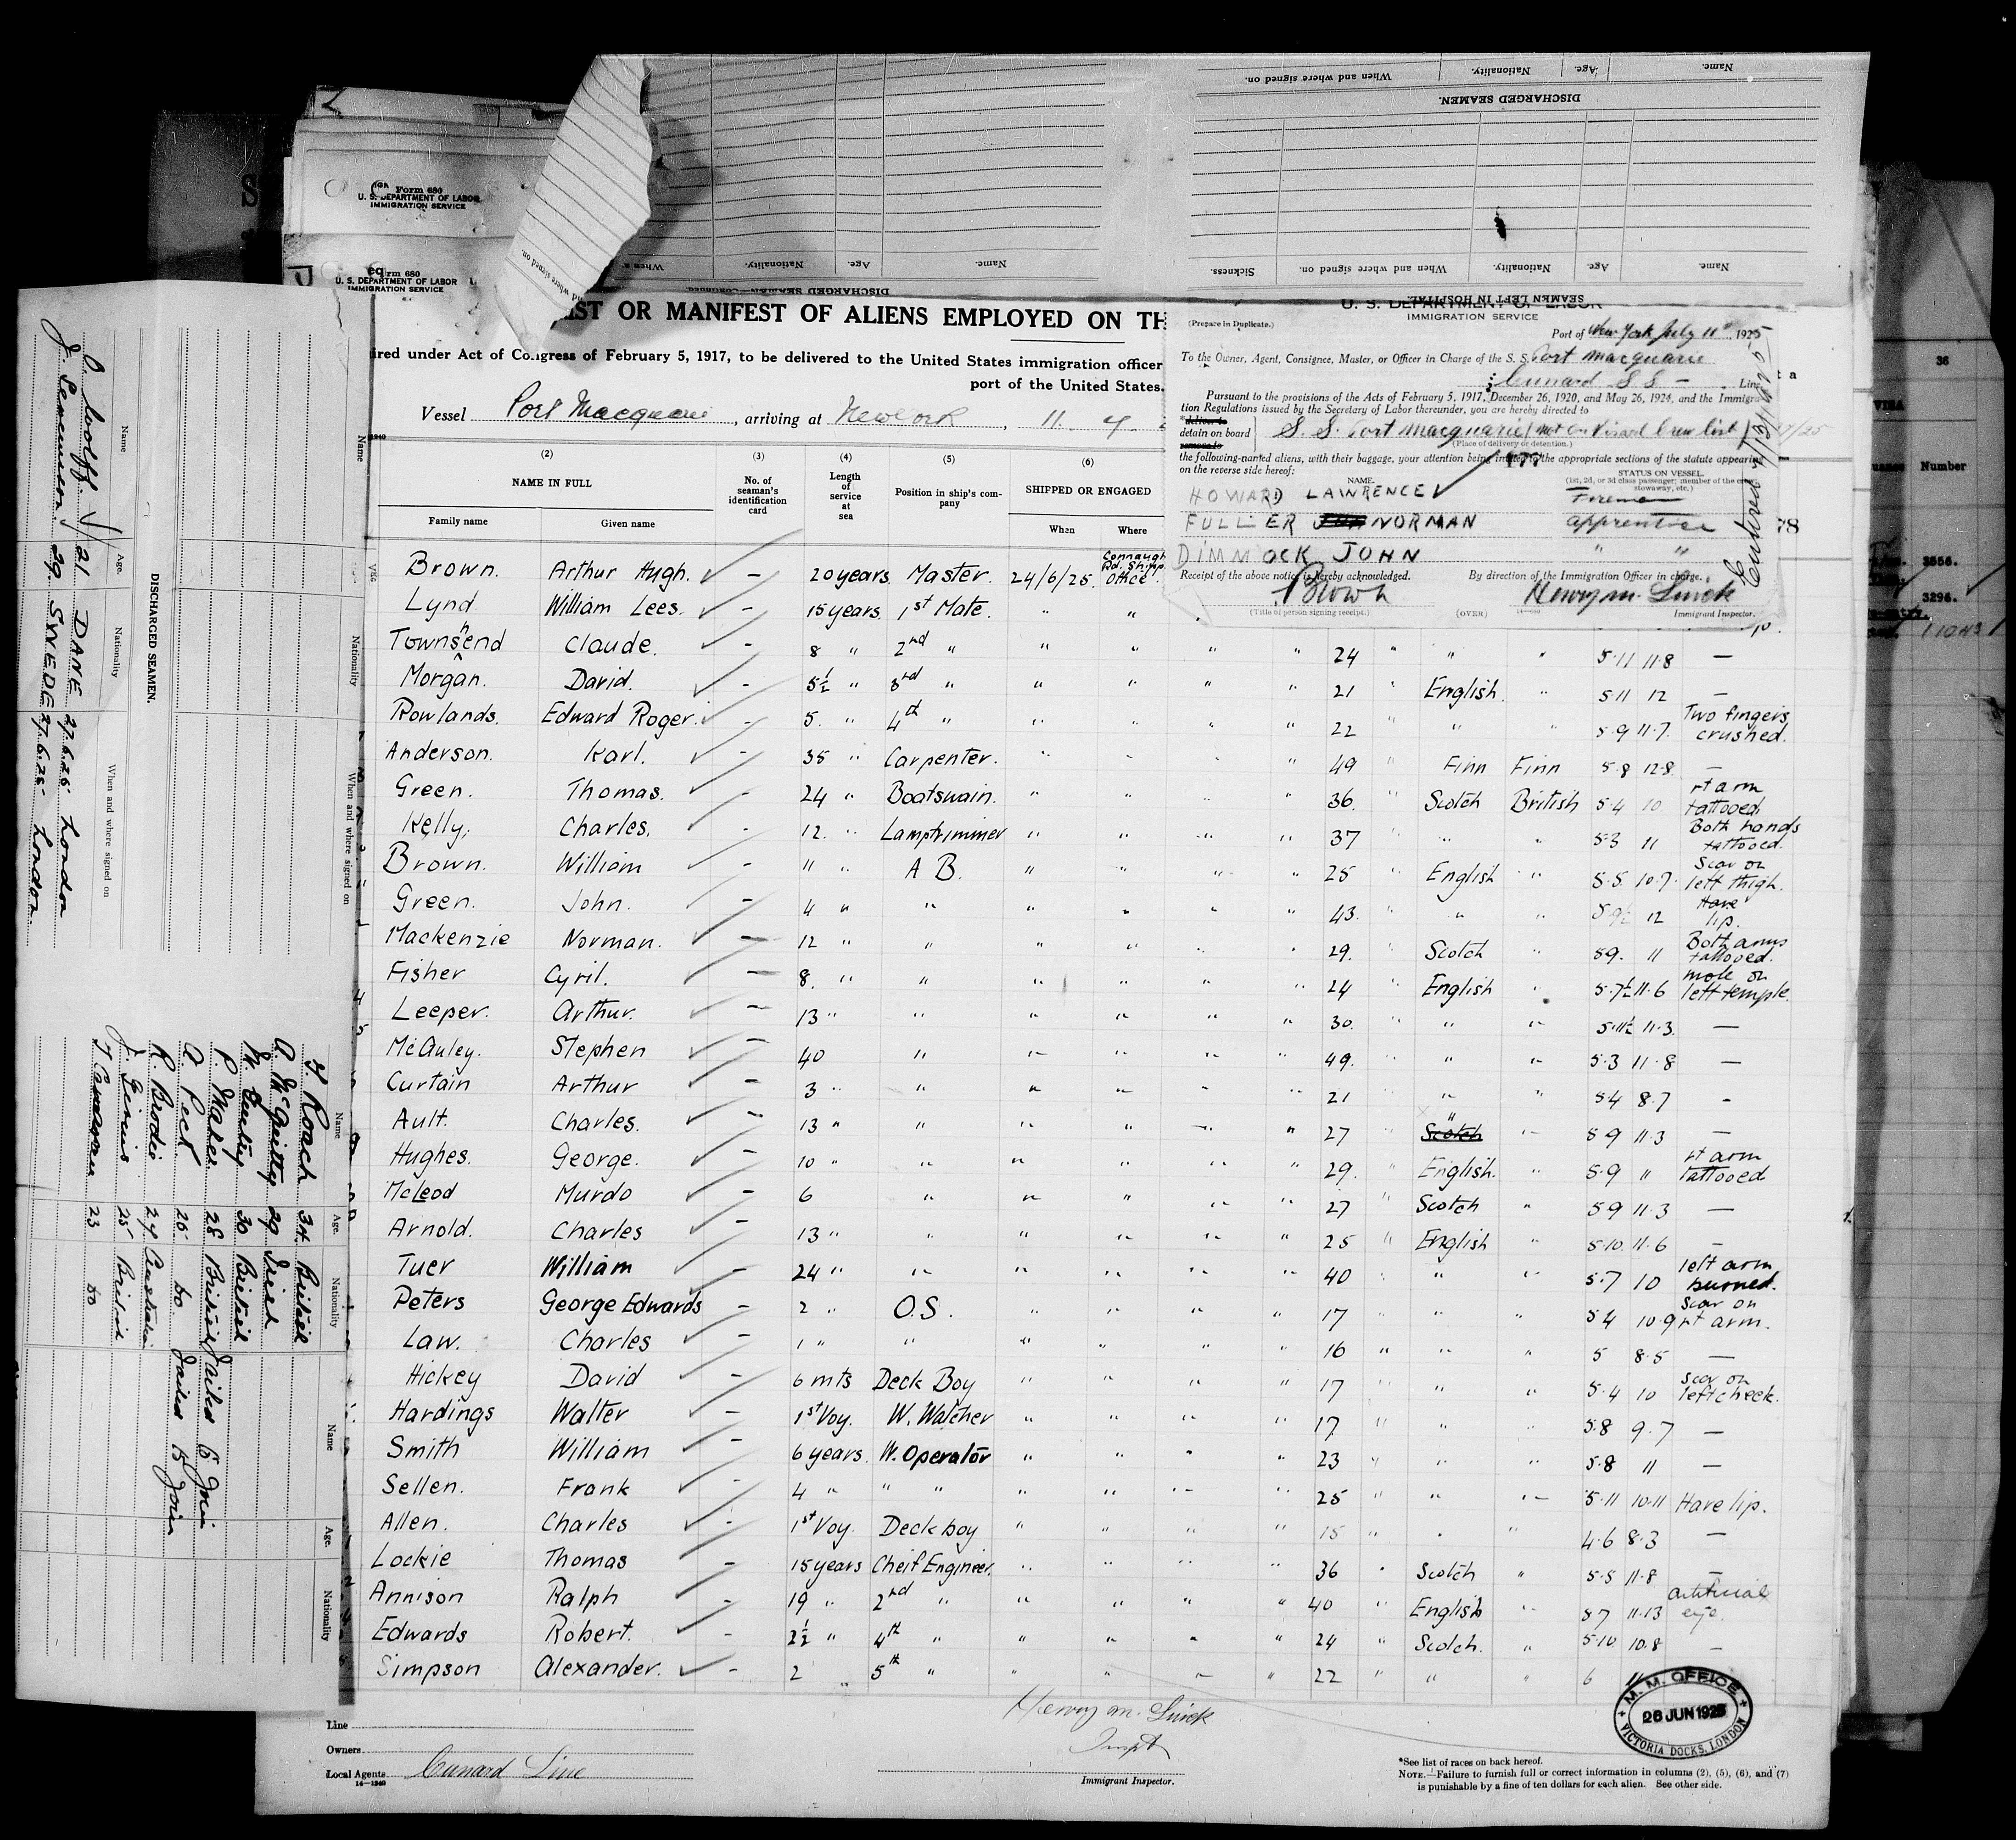 Name.
Age.
Nationality.
When and where signed on.
DISCHARGED SEAMEN.
Name.
Age.
Nationality.
When and where signed on.
Sickness.
SEAMEN LEFT IN HOSPITAL.
Name.
Age.
Nationality.
DISCHARGED SEAMEN
Form 680
U. S. DEPARTMENT OF LABOR
IMMIGRATION SERVICE
U. S. DEPARTMENT OF LABOR
IMMIGRATION SERVICE
IST OR MANIFEST OF ALIENS EMPLOYED ON TH
ired under Act of Congress of February 5, 1917, to be delivered to the United States immigration officer
port of the United States.
Vessel Port Macquarie, arriving at New York, 11.
(2) (3) (4) (5) (6)
NAME IN FULL
No. of seaman's identification card
Length of service at sea
Position in ship's company
SHIPPED OR ENGAGED
Family name Given name When Where
U. S. DEPARTMENT OF LABOR
IMMIGRATION SERVICE
(Prepare in Duplicate.)
Port of New York July 11" 1925
To the Owner, Agent, Consignee, Master, or Officer in Charge of the S. S. Port Macquarie
Cunard S S - Line
Pursuant to the provisions of the Acts of February 5, 1917, December 26, 1920, and May 26, 1924, and the Immigra-
tion Regulations issued by the Secretary of Labor thereunder, you are hereby directed to
deliver to
detain on board S. S. Port Macquarie (not on Visaed Crew list)
remove to
(Place of delivery or detention.)
the following-named aliens, with their baggage, your attention being invited to the appropriate sections of the statute appearing
on the reverse side hereof: 177
NAME. STATUS ON VESSEL.
(1st, 2d, or 3d class passenger; member of the crew, stowaway, etc.)
HOWARD LAWRENCE Fireman
FULLER NORMAN apprentice
DIMMOCK JOHN " "
Receipt of the above notice is hereby acknowledged. By direction of the Immigration Officer in charge.
ABrown Henry M. Linek
(Title of person signing receipt.) (OVER) Immigrant Inspector.
Brown. Arthur Hugh. - 20 years. Master. 24/6/25. Connaugh Rd. Shipp Office
Lynd William Lees. - 15 years. 1st Mate. " "
Townshend Claude. - 8 " 2nd " " " " " 24 " " " 5.11 11.8 -
Morgan. David. - 5½ " 3rd " " " " " 21 " English. " 5.11 12 -
Rowlands. Edward Roger. - 5. " 4th " " " " " 22 " " " 5.9 11.7. Two fingers crushed.
Anderson. Karl. - 35 " Carpenter. " " " 49 " Finn Finn 5.8 12.8. -
Green. Thomas. - 24 " Boatswain. " " " " 36. " Scotch British 5.4 10 rt arm tattooed
Kelly. Charles. - 12. " Lamptrimmer " " " " 37 " " " 5.3 11 Both hands tattooed.
Brown. William - 11 " A B. " " " " 25 " English " 5.5. 10.7. Scar on left thigh.
Green. John. - 4 " " " " " " 43. " " " 5.9½ 12 Hare lip.
Mackenzie Norman. - 12 " " " " " " 29. " Scotch " 5.9. 11 Both arms tattooed.
Fisher Cyril. - 8. " " " " " " 24 " English " 5.7½ 11.6 mole on left temple.
Leeper. Arthur. - 13 " " " " " " 30. " " " 5.11½ 11.3. -
McAuley. Stephen - 40 " " " " " 49. " " " 5.3 11.8 -
Curtain Arthur - 3 " " " " " " 21 " " " 5.4 8.7 -
Ault. Charles. - 13 " " " " " " 27 " Scotch " " 5.9 11.3 -
Hughes. George. - 10 " " " " " " 29. " English. " 5.9 " rt arm tattooed
McLeod Murdo - 6 " " " " " 27 " Scotch " 5.9 11.3 -
Arnold. Charles - 13 " " " " " " 25 " English " 5.10. 11.6 -
Tuer William - 24 " " " " " " 40 " " " 5.7 10 left arm burned.
Peters George Edwards - 2 " O.S. " " " " 17 " " " 5.4 10.9 Scar on rt arm.
Law. Charles - 1 " " " " " " 16 " " " 5 8.5 -
Hickey David - 6 mts Deck Boy " " " " 17 " " " 5.4 10 scar on left cheek.
Hardings Walter - 1st Voy. W. Watcher " " " " 17 " " " 5.8 9.7 -
Smith William - 6 years. W. Operator " " " " 23 " " " 5.8 11 -
Sellen. Frank - 4 " " " " " " " 25 " " " 5.11 10.11 Hare lip.
Allen. Charles - 1st Voy. Deck boy " " " " 15 " " " 4.6 8.3 -
Lockie Thomas - 15 years Cheif Engineer. " " " " 36 " Scotch " 5.5 11.8 -
Annison Ralph - 19 " 2nd " " " " " 40 " English " 5.7 11.13 artificial eye.
Edwards Robert. - 2½ " 4th " " " " " 24 " Scotch. " 5.10 10.8 -
Simpson Alexander. - 2 " 5th " " " " " 22 " " " 6 "
Line
Owners
Local Agents Cunard Line
14-1240
Henry M. Linek
Inspt
Immigrant Inspector.
M. M. OFFICE
26 JUN 1925
VICTORIA DOCKS, LONDON
*See list of races on back hereof.
NOTE.—Failure to furnish full or correct information in columns (2), (5), (6), and (7)
is punishable by a fine of ten dollars for each alien. See other side.
DISCHARGED SEAMEN.
Name Age. Nationality When and where signed on
Wolff. 21 DANE 27.6.25 London
29. SWEDE 27.6.25 London.
Name Age. Nationality
Roach 34. British
A. McGeitty 29 Irish
30 British
P. Maher 28 British Jailed 6 Join
A. Peck 26 do Jailed to Join
R. Brodie 24 Australia
J. Gennis 25 British
23 do
Name Age. Nationality
36
Number
3556.
3296.